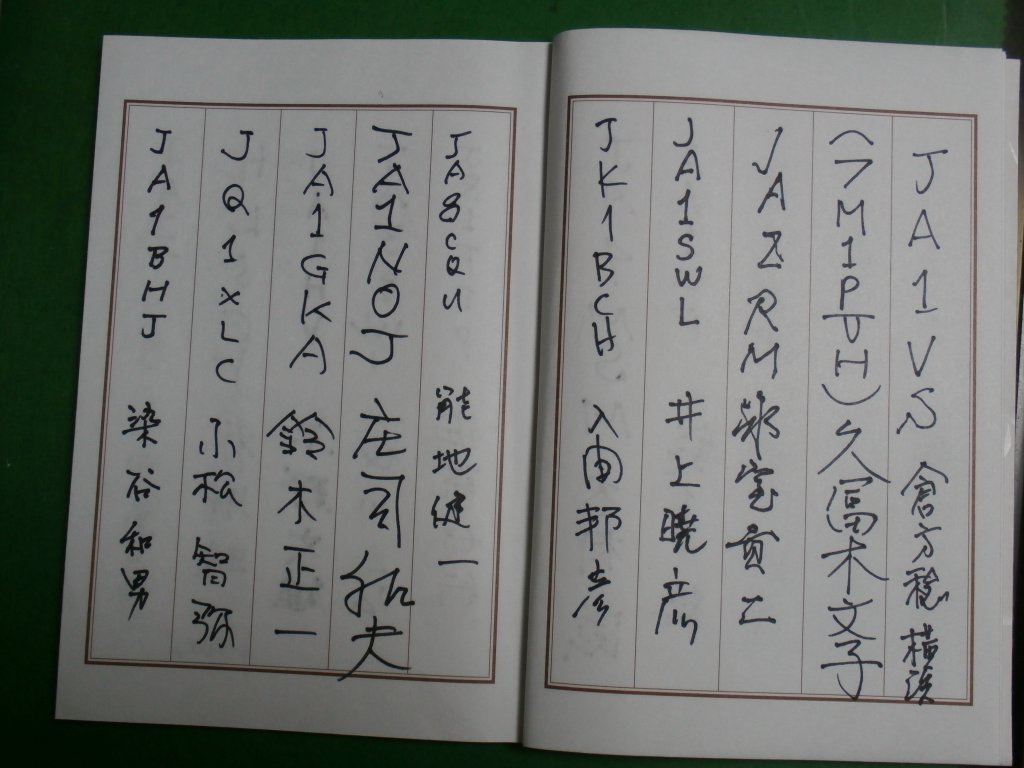 JA1VS 倉方稔 横浜
(7M1PUH) 久富木文子
JA2RM 郡宝貢二
JA1SWL 井上暁彦
JK1BCH 入由邦彦
JA8CQU 能地健一
JA1NOJ 庄司拓夫
JA1GKA 鈴木正一
JQ1XLC 小松 智弥
JA1BHJ 染谷和男